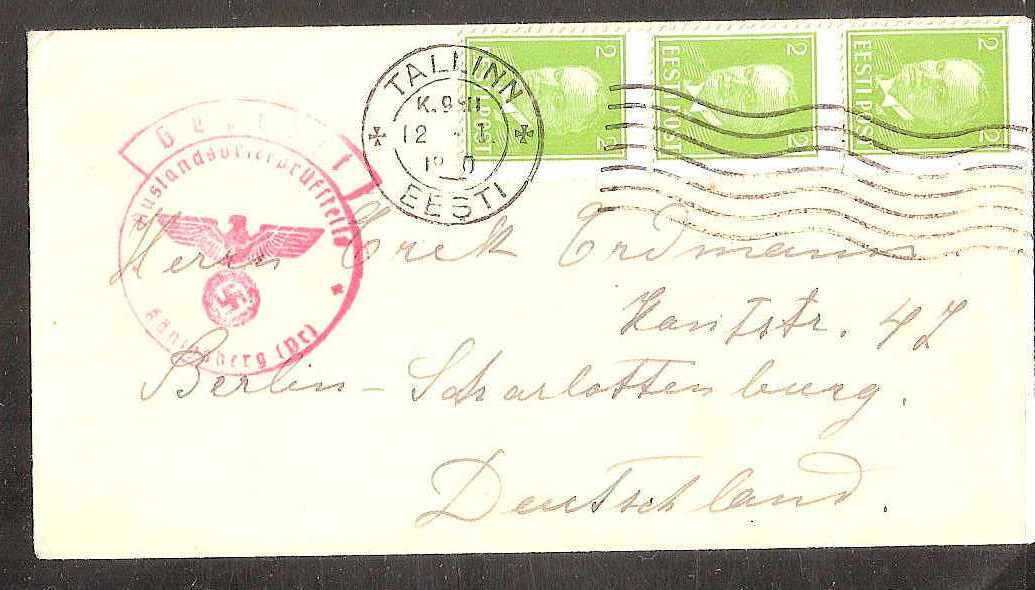 2 EESTI POST 2
2 EESTI POST 2
2 POST 2
TALLINN
K. 9-11
12
EESTI
Geöffnet
Auslandsbriefprüfstelle
Königsberg (Pr)
Herrn Erik Erdmann
Kantstr. 47
Berlin-Scharlottenburg.
Deutschland.